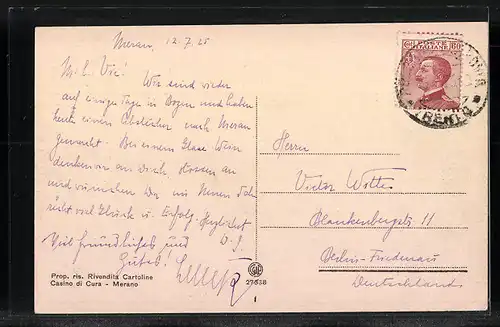 Meran, 12.7.25
M. l. Vic! Wir sind wieder
auf einige Tage in Bozen und haben
heute einen Abstecher nach Meran
gemacht. Bei einem Glase Wein
denken wir an Dich,
und wünschen Dir
viel Glück u. Erfolg. Herzlichst
Viel freundliches und
Gutes!
POSTE ITALIANE 60
TRENTO
Herrn
Victor
Blankenbergstr 11
Berlin-Friedenau
Deutschland
Prop. ris. Rivendita Cartoline
Casino di Cura - Merano
27638
I